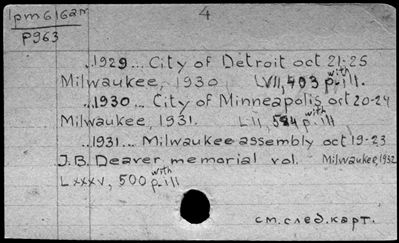 1pm616am 4
P963
..1929... City of Detroit oct 21-25
Milwaukee, 1930 LVII, 403 p. with ill.
..1930... City of Minneapolis oct 20-24
Milwaukee, 1931. LII, 584 p. with ill
..1931... Milwaukee assembly oct 19-23
J.B. Deaver memorial vol. Milwaukee, 1932
LXXXV, 500 p. with ill
см. след. карт.